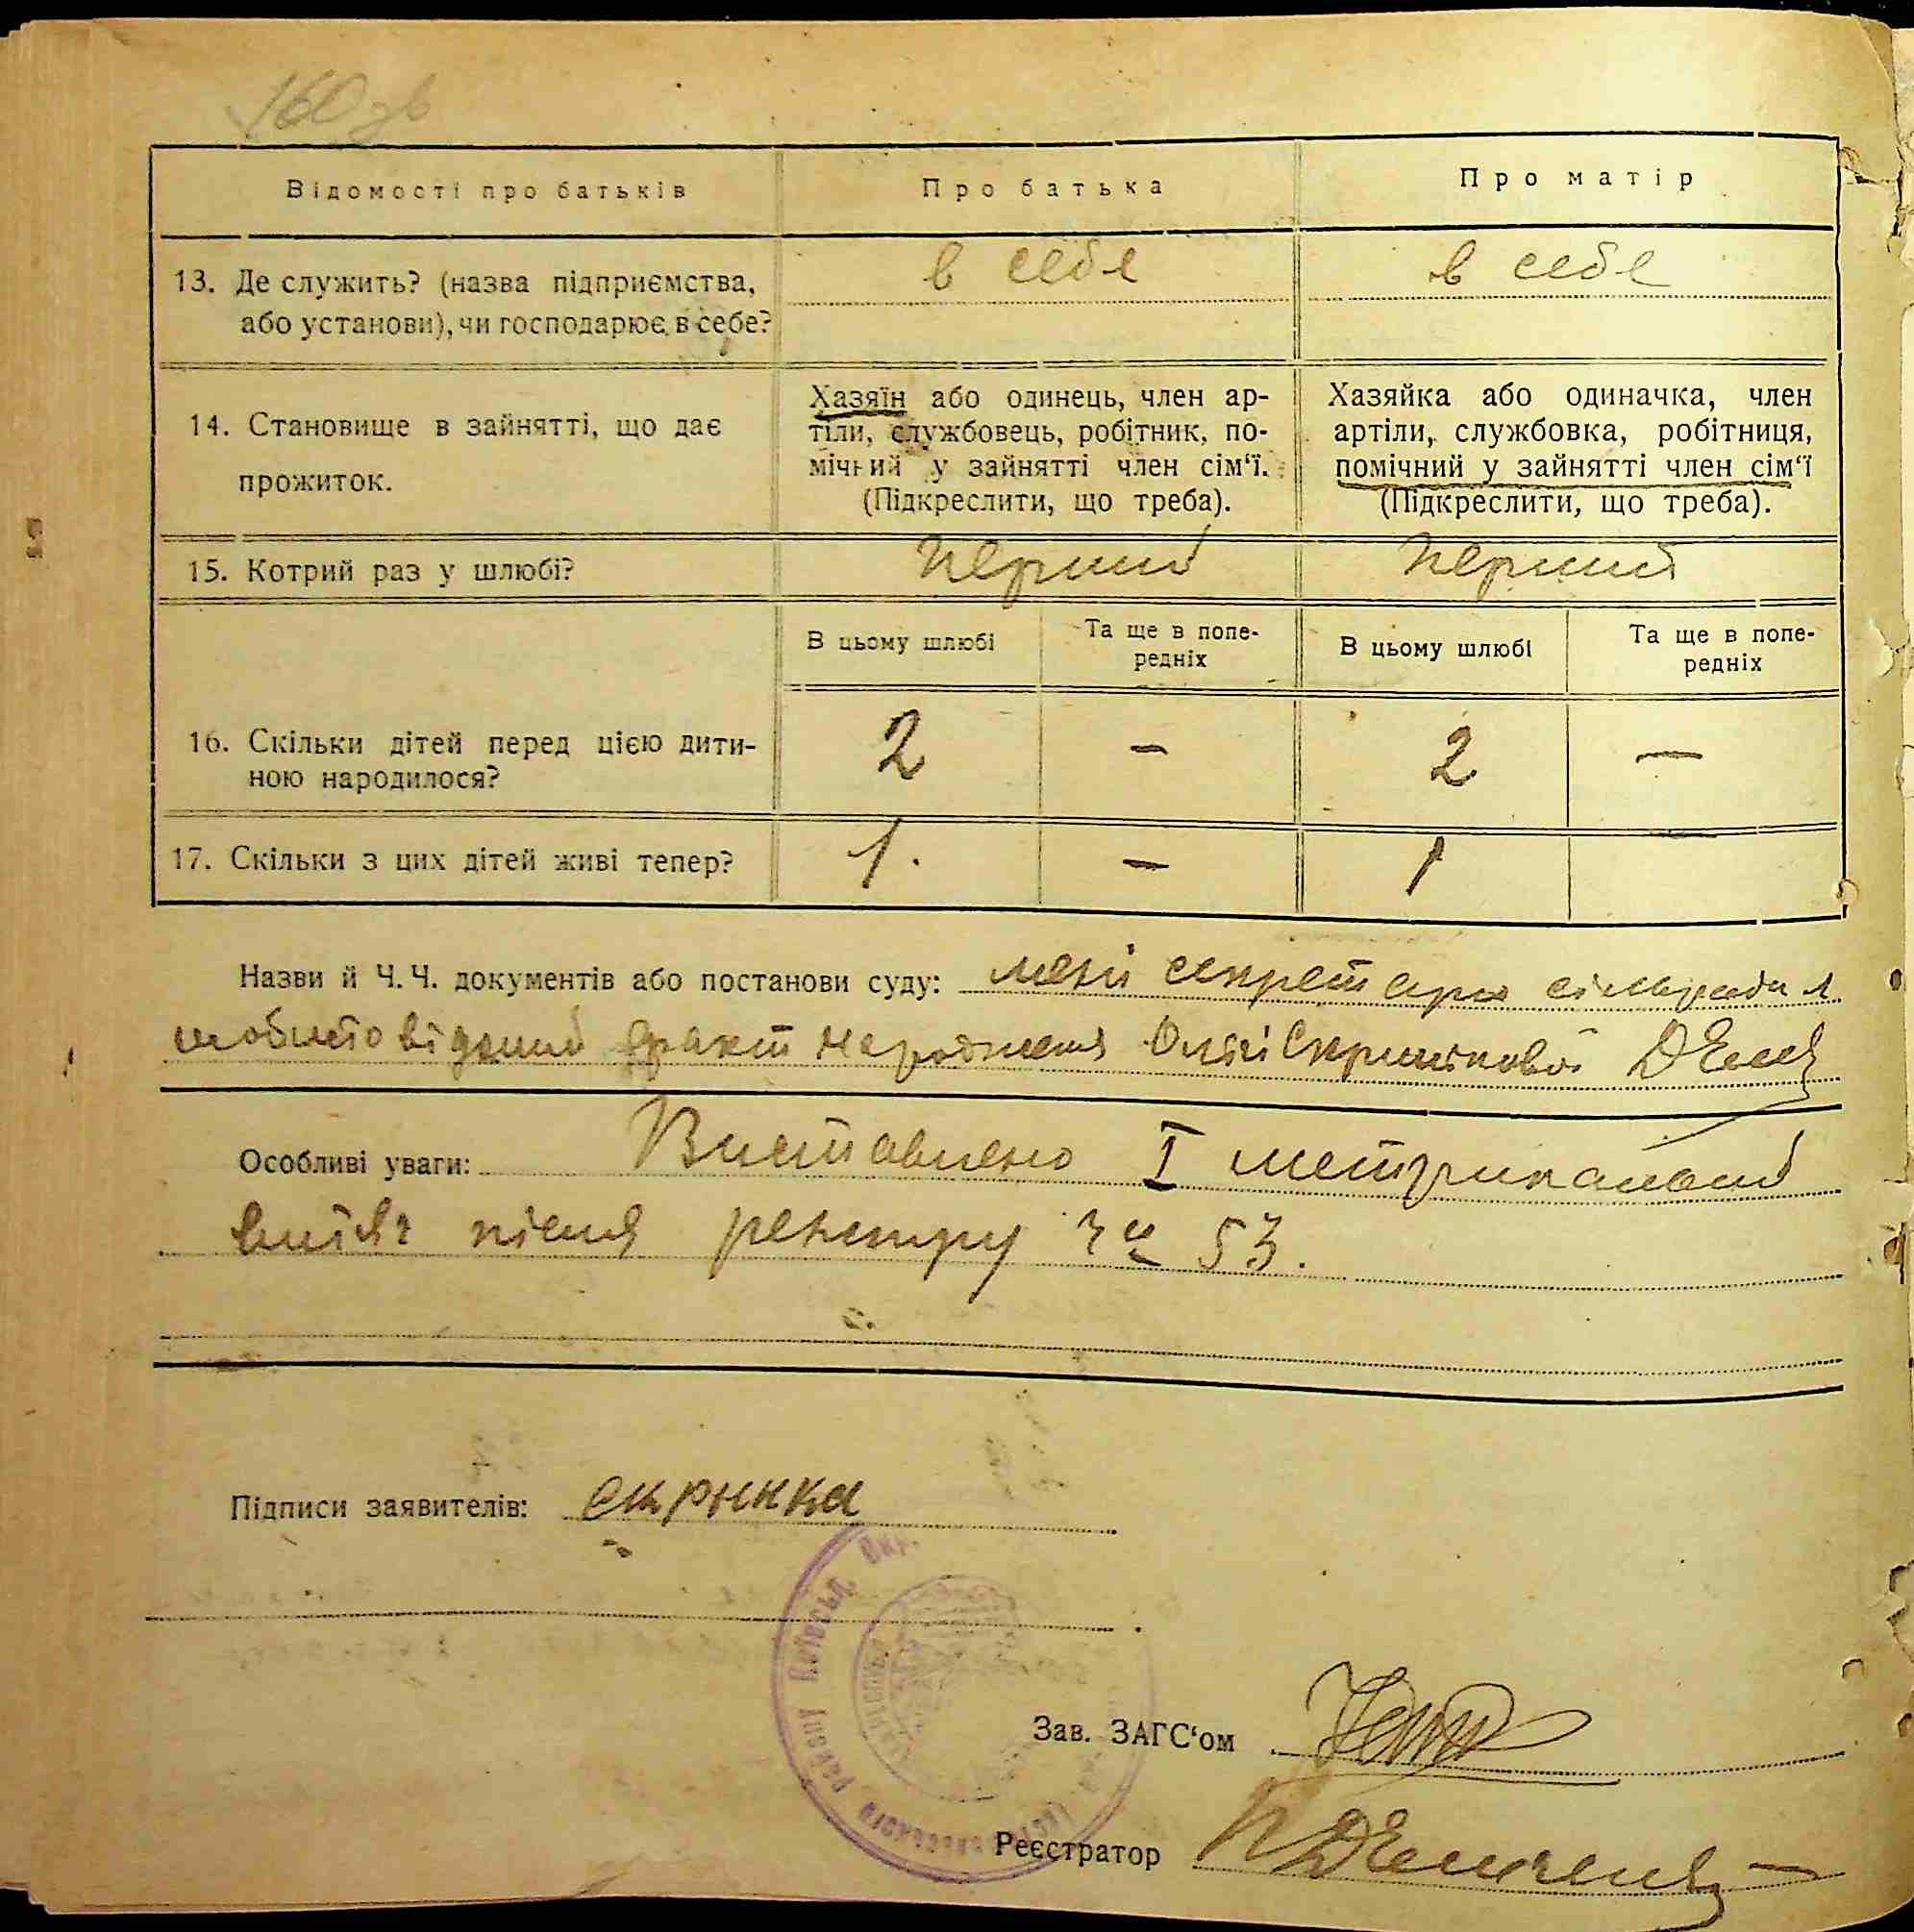 160 зв
Відомості про батьків
Про батька
Про матір
13. Де служить? (назва підприємства,
або установи), чи господарює в себе?
в себе
в себе
14. Становище в зайнятті, що дає
прожиток.
Хазяїн або одинець, член ар-
тіли, службовець, робітник, по-
мічний у зайнятті член сім‘ї.
(Підкреслити, що треба).
Хазяйка або одиначка, член
артіли, службовка, робітниця,
помічний у зайнятті член сім‘ї
(Підкреслити, що треба).
15. Котрий раз у шлюбі?
перший
перший
В цьому шлюбі
Та ще в попе-
редніх
В цьому шлюбі
Та ще в попе-
редніх
16. Скільки дітей перед цією дити-
ною народилося?
2
—
2
—
17. Скільки з цих дітей живі тепер?
1.
—
1
Назви й Ч. Ч. документів або постанови суду: мені секретарю сільради
особисто відомий факт народження Скринікової
Особливі уваги: Виставлено I метрикальний
витяг після реєстру ч 53.
Підписи заявителів: скрынка
району Київськ. Окр.
Зав. ЗАГС‘ом
Реєстратор